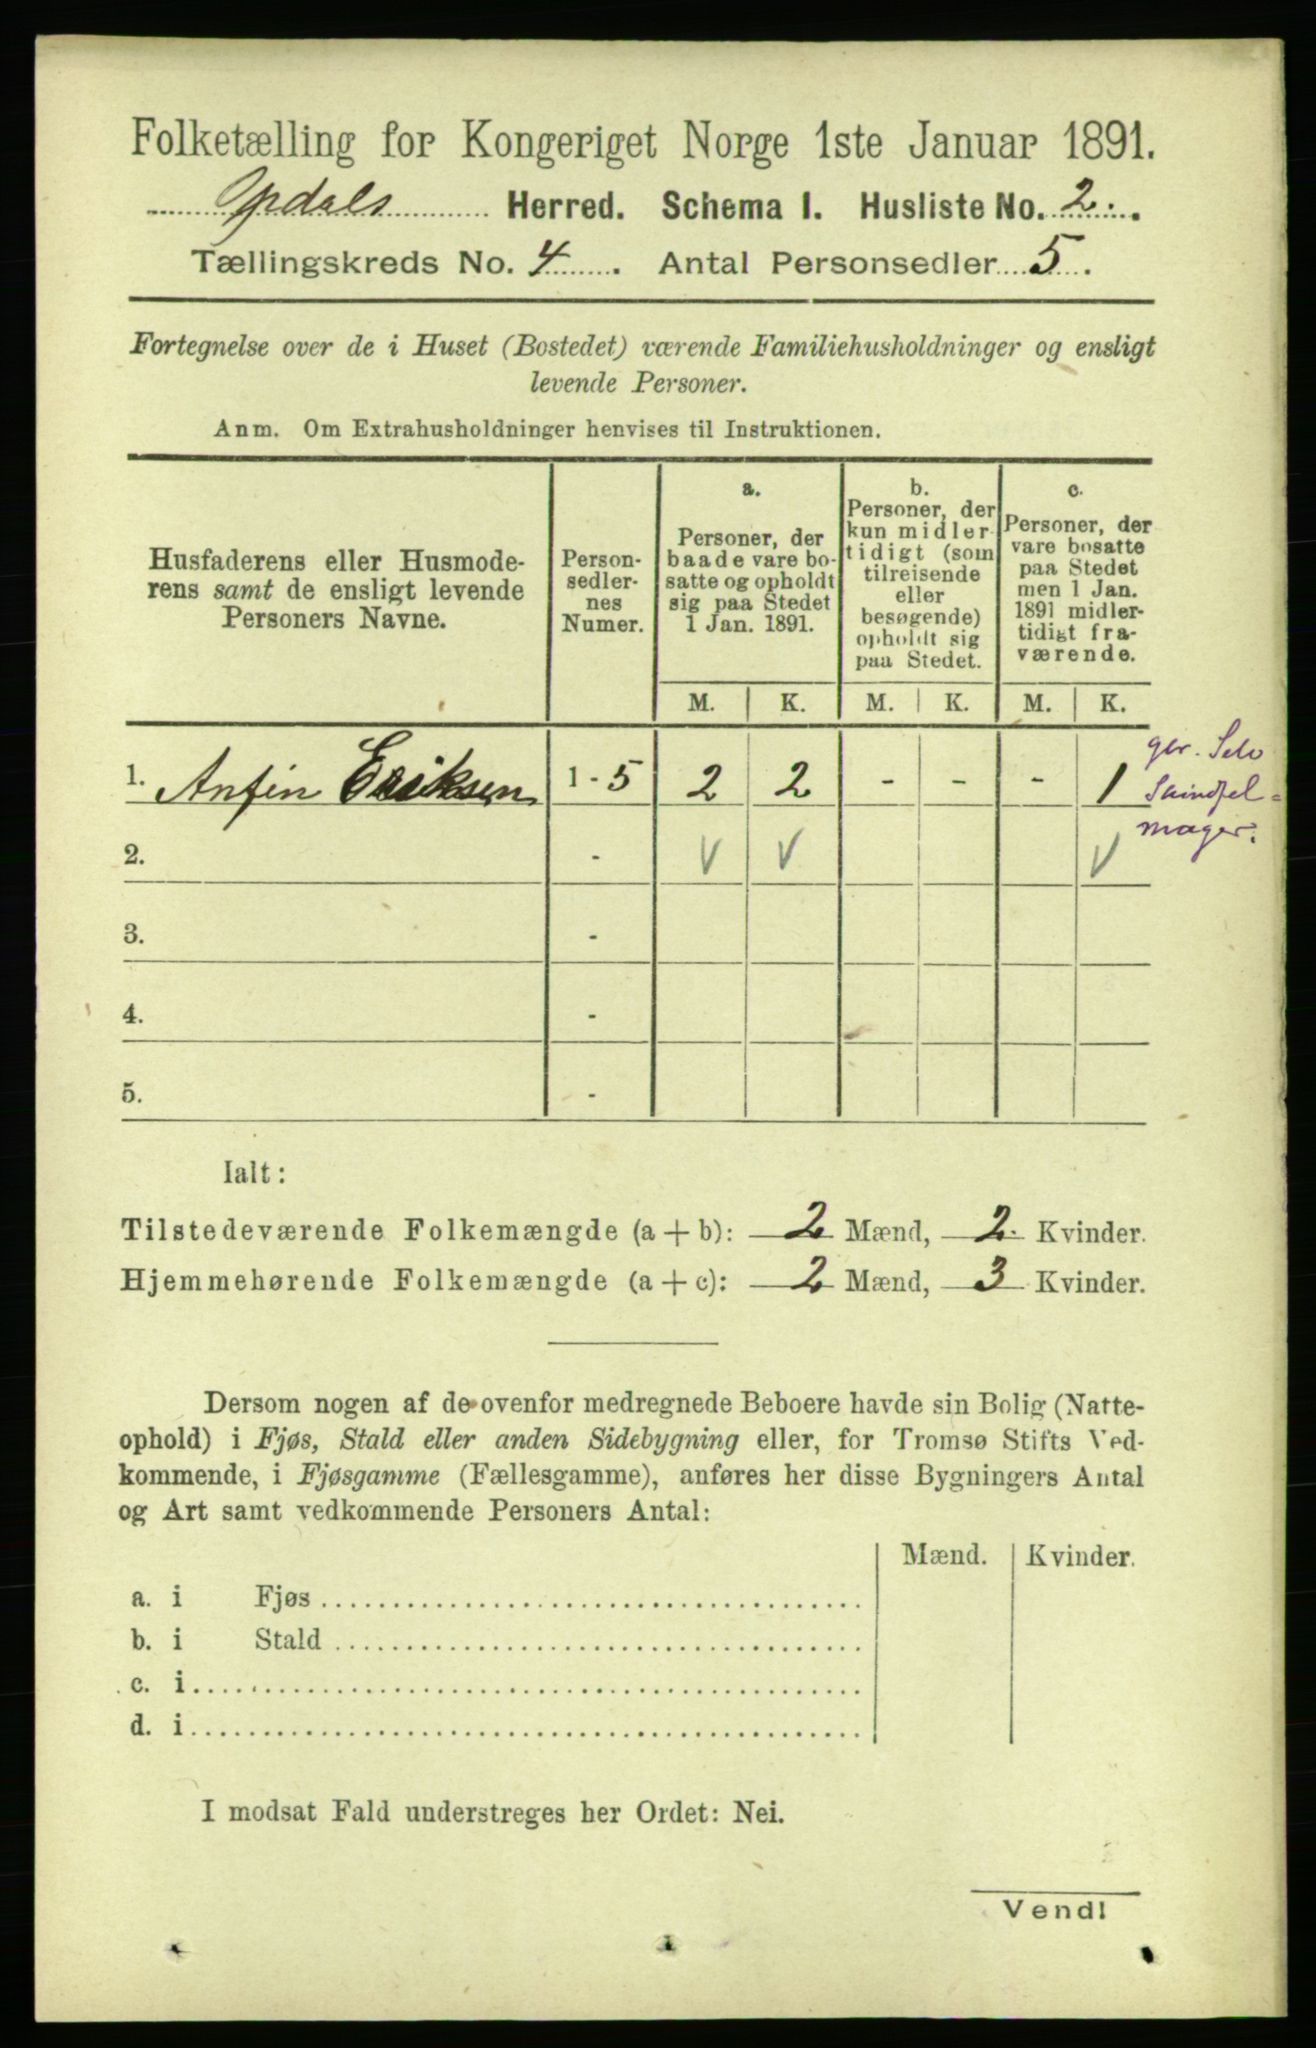 Folketælling for Kongeriget Norge 1ste Januar 1891.
Opdals Herred. Schema 1. Husliste No. 2.
Tællingskreds No. 4. Antal Personsedler 5.
Fortegnelse over de i Huset (Bostedet) værende Familiehusholdninger og ensligt
levende Personer.
Anm. Om Extrahusholdninger henvises til Instruktionen.
Husfaderens eller Husmode-
rens samt de ensligt levende
Personers Navne.
Person-
sedler-
nes
Numer.
a.
Personer, der
baade vare bo-
satte og opholdt
sig paa Stedet
1 Jan. 1891.
b.
Personer, der
kun midler-
tidigt (som
tilreisende
eller
besøgende)
opholdt sig
paa Stedet.
c.
Personer, der
vare bosatte
paa Stedet
men 1 Jan.
1891 midler-
tidigt fra-
værende.
M. K. M. K. M. K.
1. Anfin Eriksen 1 - 5 2 2 - - - 1
mager.
2. - V V V
3. -
4. -
5. -
Ialt:
Tilstedeværende Folkemængde (a + b): 2 Mænd, 2. Kvinder.
Hjemmehørende Folkemængde (a + c): 2 Mænd, 3 Kvinder.
Dersom nogen af de ovenfor medregnede Beboere havde sin Bolig (Natte-
ophold) i Fjøs, Stald eller anden Sidebygning eller, for Tromsø Stifts Ved-
kommende, i Fjøsgamme (Fællesgamme), anføres her disse Bygningers Antal
og Art samt vedkommende Personers Antal:
Mænd. Kvinder.
a. i Fjøs
b. i Stald
c. i
d. i
I modsat Fald understreges her Ordet: Nei.
Vend!